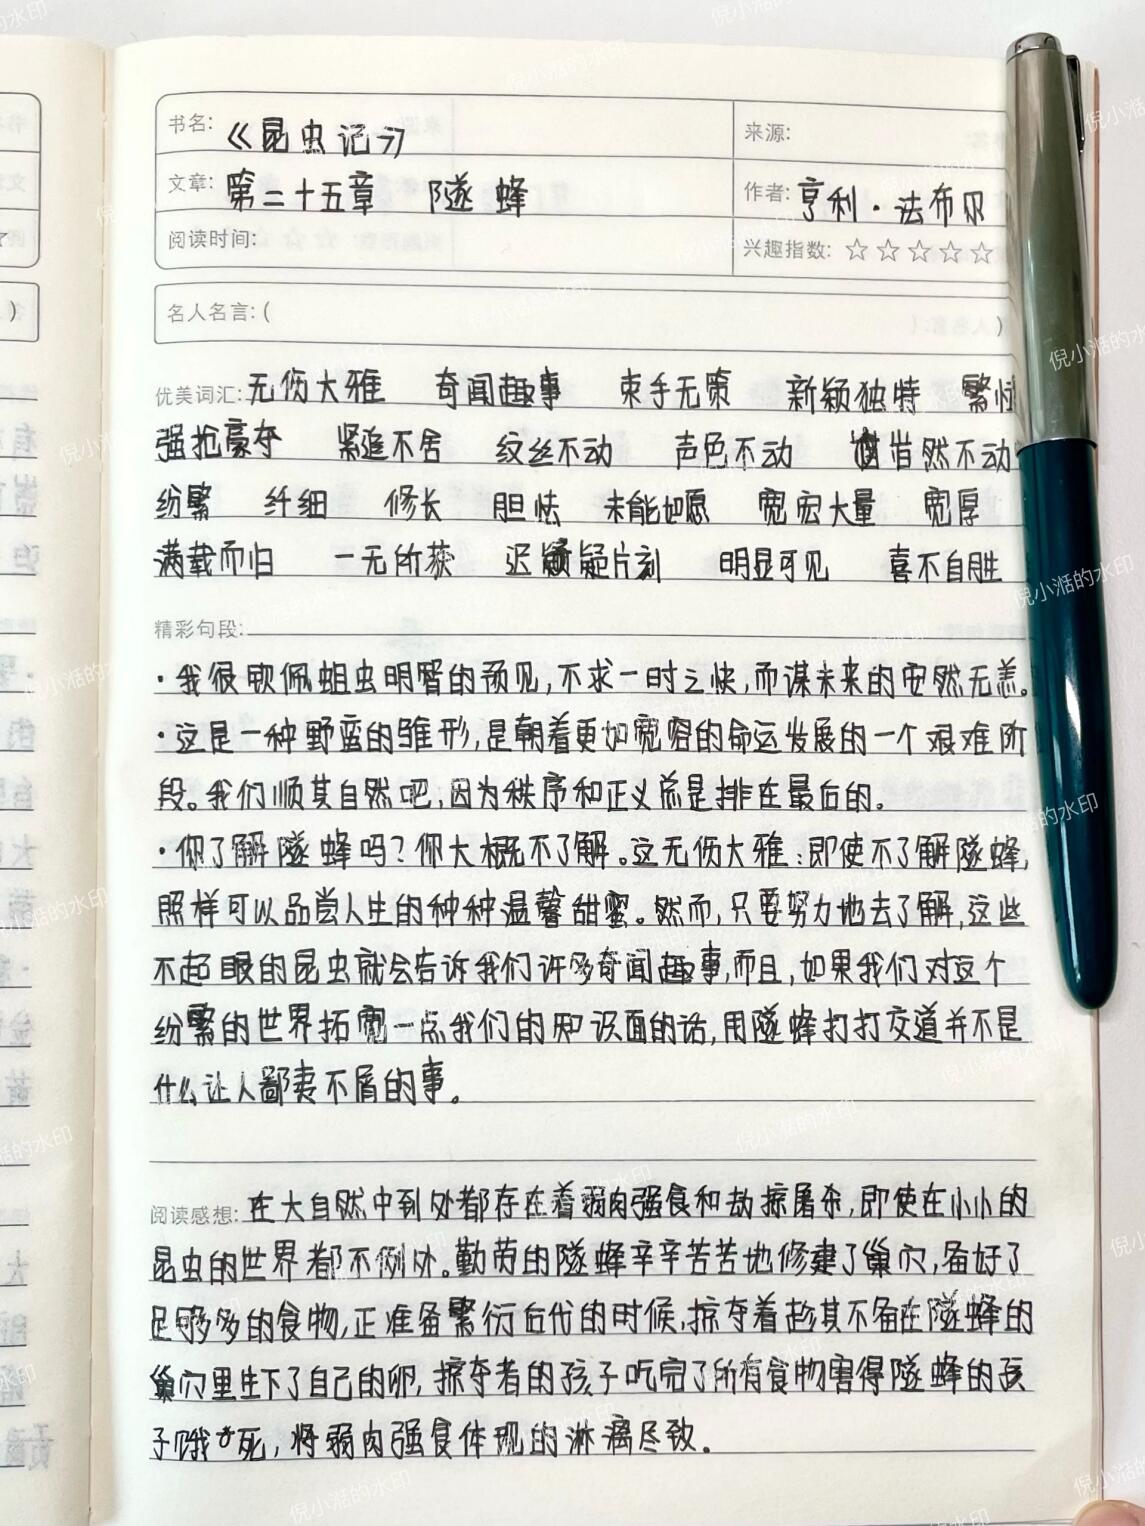 书名: 《昆虫记》 来源:
文章: 第二十五章 隧蜂 作者: 亨利·法布尔
阅读时间: 兴趣指数: ☆☆☆☆☆
名人名言: ( )
优美词汇: 无伤大雅 奇闻趣事 束手无策 新颖独特 繁忙
强抢豪夺 紧追不舍 纹丝不动 声色不动 岿然不动
纷繁 纤细 修长 胆怯 未能如愿 宽宏大量 宽厚
满载而归 一无所获 迟疑片刻 明显可见 喜不自胜
精彩句段:
·我很钦佩蛆虫明智的预见,不求一时之快,而谋未来的安然无恙。
·这是一种野蛮的雏形,是朝着更加宽容的命运发展的一个艰难阶
段。我们顺其自然吧,因为秩序和正义总是排在最后的。
·你了解隧蜂吗?你大概不了解。这无伤大雅:即使不了解隧蜂,
照样可以品尝人生的种种温馨甜蜜。然而,只要努力地去了解,这些
不起眼的昆虫就会告诉我们许多奇闻趣事,而且,如果我们对这个
纷繁的世界拓宽一点我们的知识面的话,用隧蜂打打交道并不是
什么让人鄙夷不屑的事。
阅读感想: 在大自然中到处都存在着弱肉强食和劫掠屠杀,即使在小小的
昆虫的世界都不例外。勤劳的隧蜂辛辛苦苦地修建了巢穴,备好了
足够多的食物,正准备繁衍后代的时候,掠夺着趁其不备在隧蜂的
巢穴里生下了自己的卵,掠夺者的孩子吃完了所有食物害得隧蜂的孩
子饿死,将弱肉强食体现的淋漓尽致。
倪小湉的水印